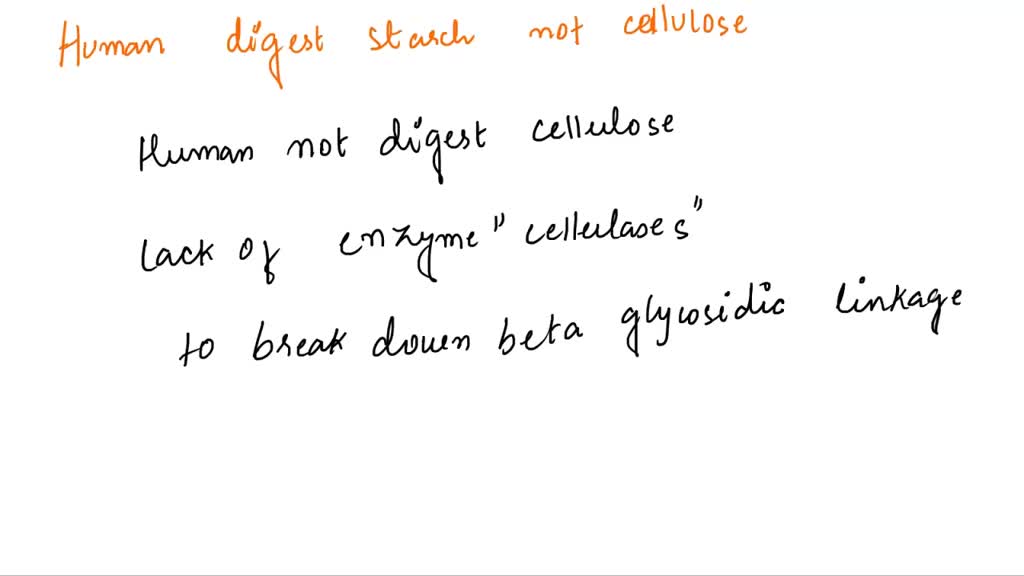 Human digest starch not cellulose
Human not digest cellulose
lack of enzyme "cellulases"
to break down beta glycosidic linkage